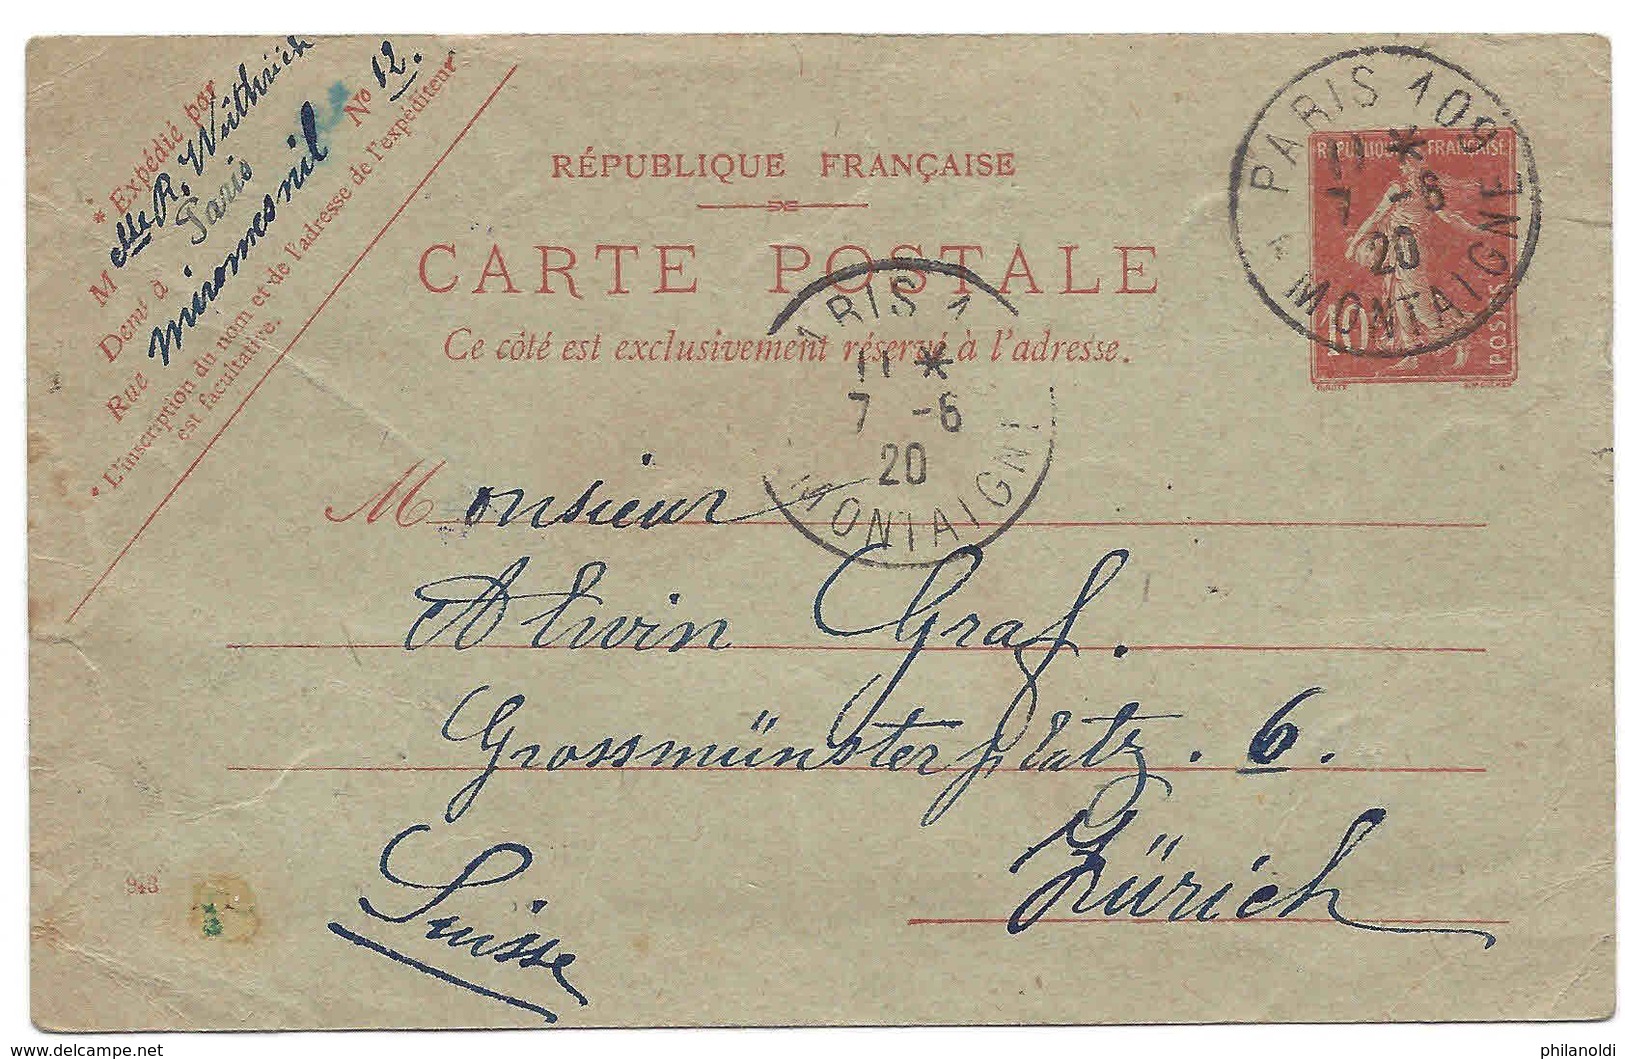 * Expédié par
Mlle R. Wüthrich
Demt à Paris
Rue miromesnil No 12.
* L'inscription du nom et de l'adresse de l'expéditeur
est facultative.
RÉPUBLIQUE FRANÇAISE
CARTE POSTALE
Ce côté est exclusivement réservé à l'adresse.
PARIS 109
11 *
7 -6
20
MONTAIGNE (60)
RÉPUBLIQUE FRANÇAISE
10
POSTES
ARIS 1
11 *
7 -6
20
MONTAIGN
Monsieur
Alwin Graf.
Grossmünsterplatz. 6.
Zürich
Suisse
943
delcampe.net
philanoldi